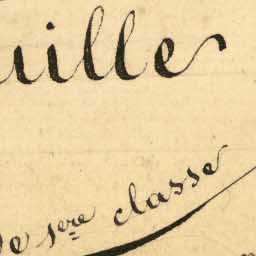 uille
de 1ère classe